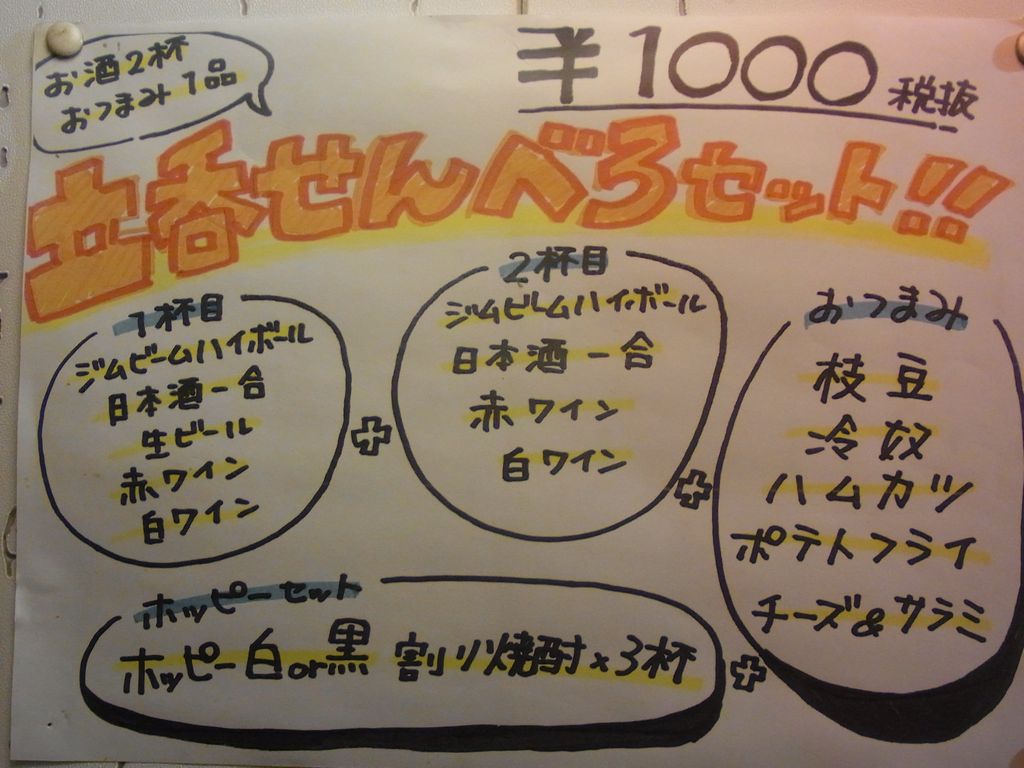 お酒2杯
おつまみ1品
¥1000 税抜
立呑せんべろセット!!
1杯目
ジムビームハイボール
日本酒一合
生ビール
赤ワイン
白ワイン
+
2杯目
ジムビームハイボール
日本酒一合
赤ワイン
白ワイン
+
おつまみ
枝豆
冷奴
ハムカツ
ポテトフライ
チーズ&サラミ
ホッピーセット
ホッピー白or黒 割り焼酎×3杯
+